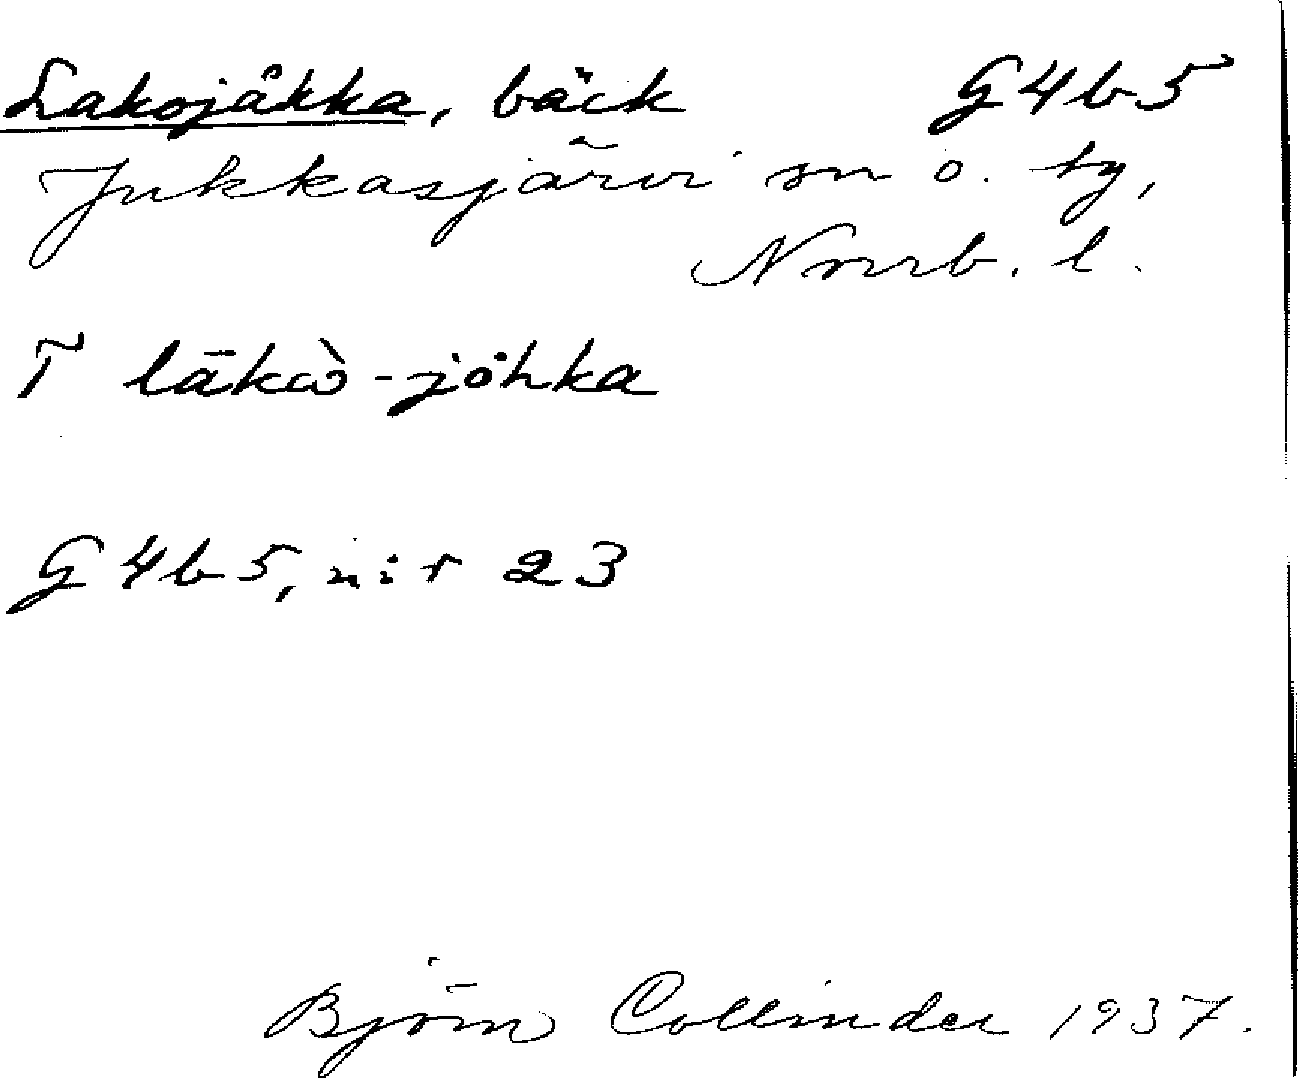 Lakojåkka, bäck G4b5
Jukkasjärvi sn o. ty,
Norrb. l.
T lākɷ̀-jȯhka
G4b5, n:r 23
Björn Collinder 1937.